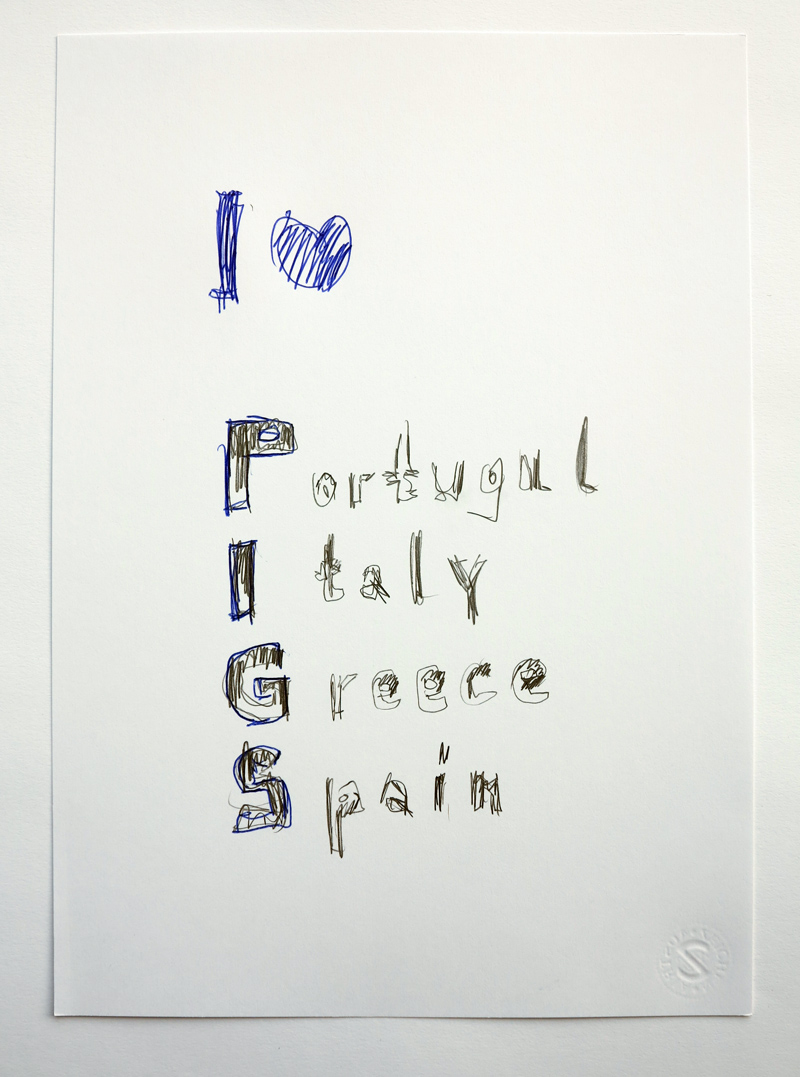 I ♥
Portugal
Italy
Greece
Spain